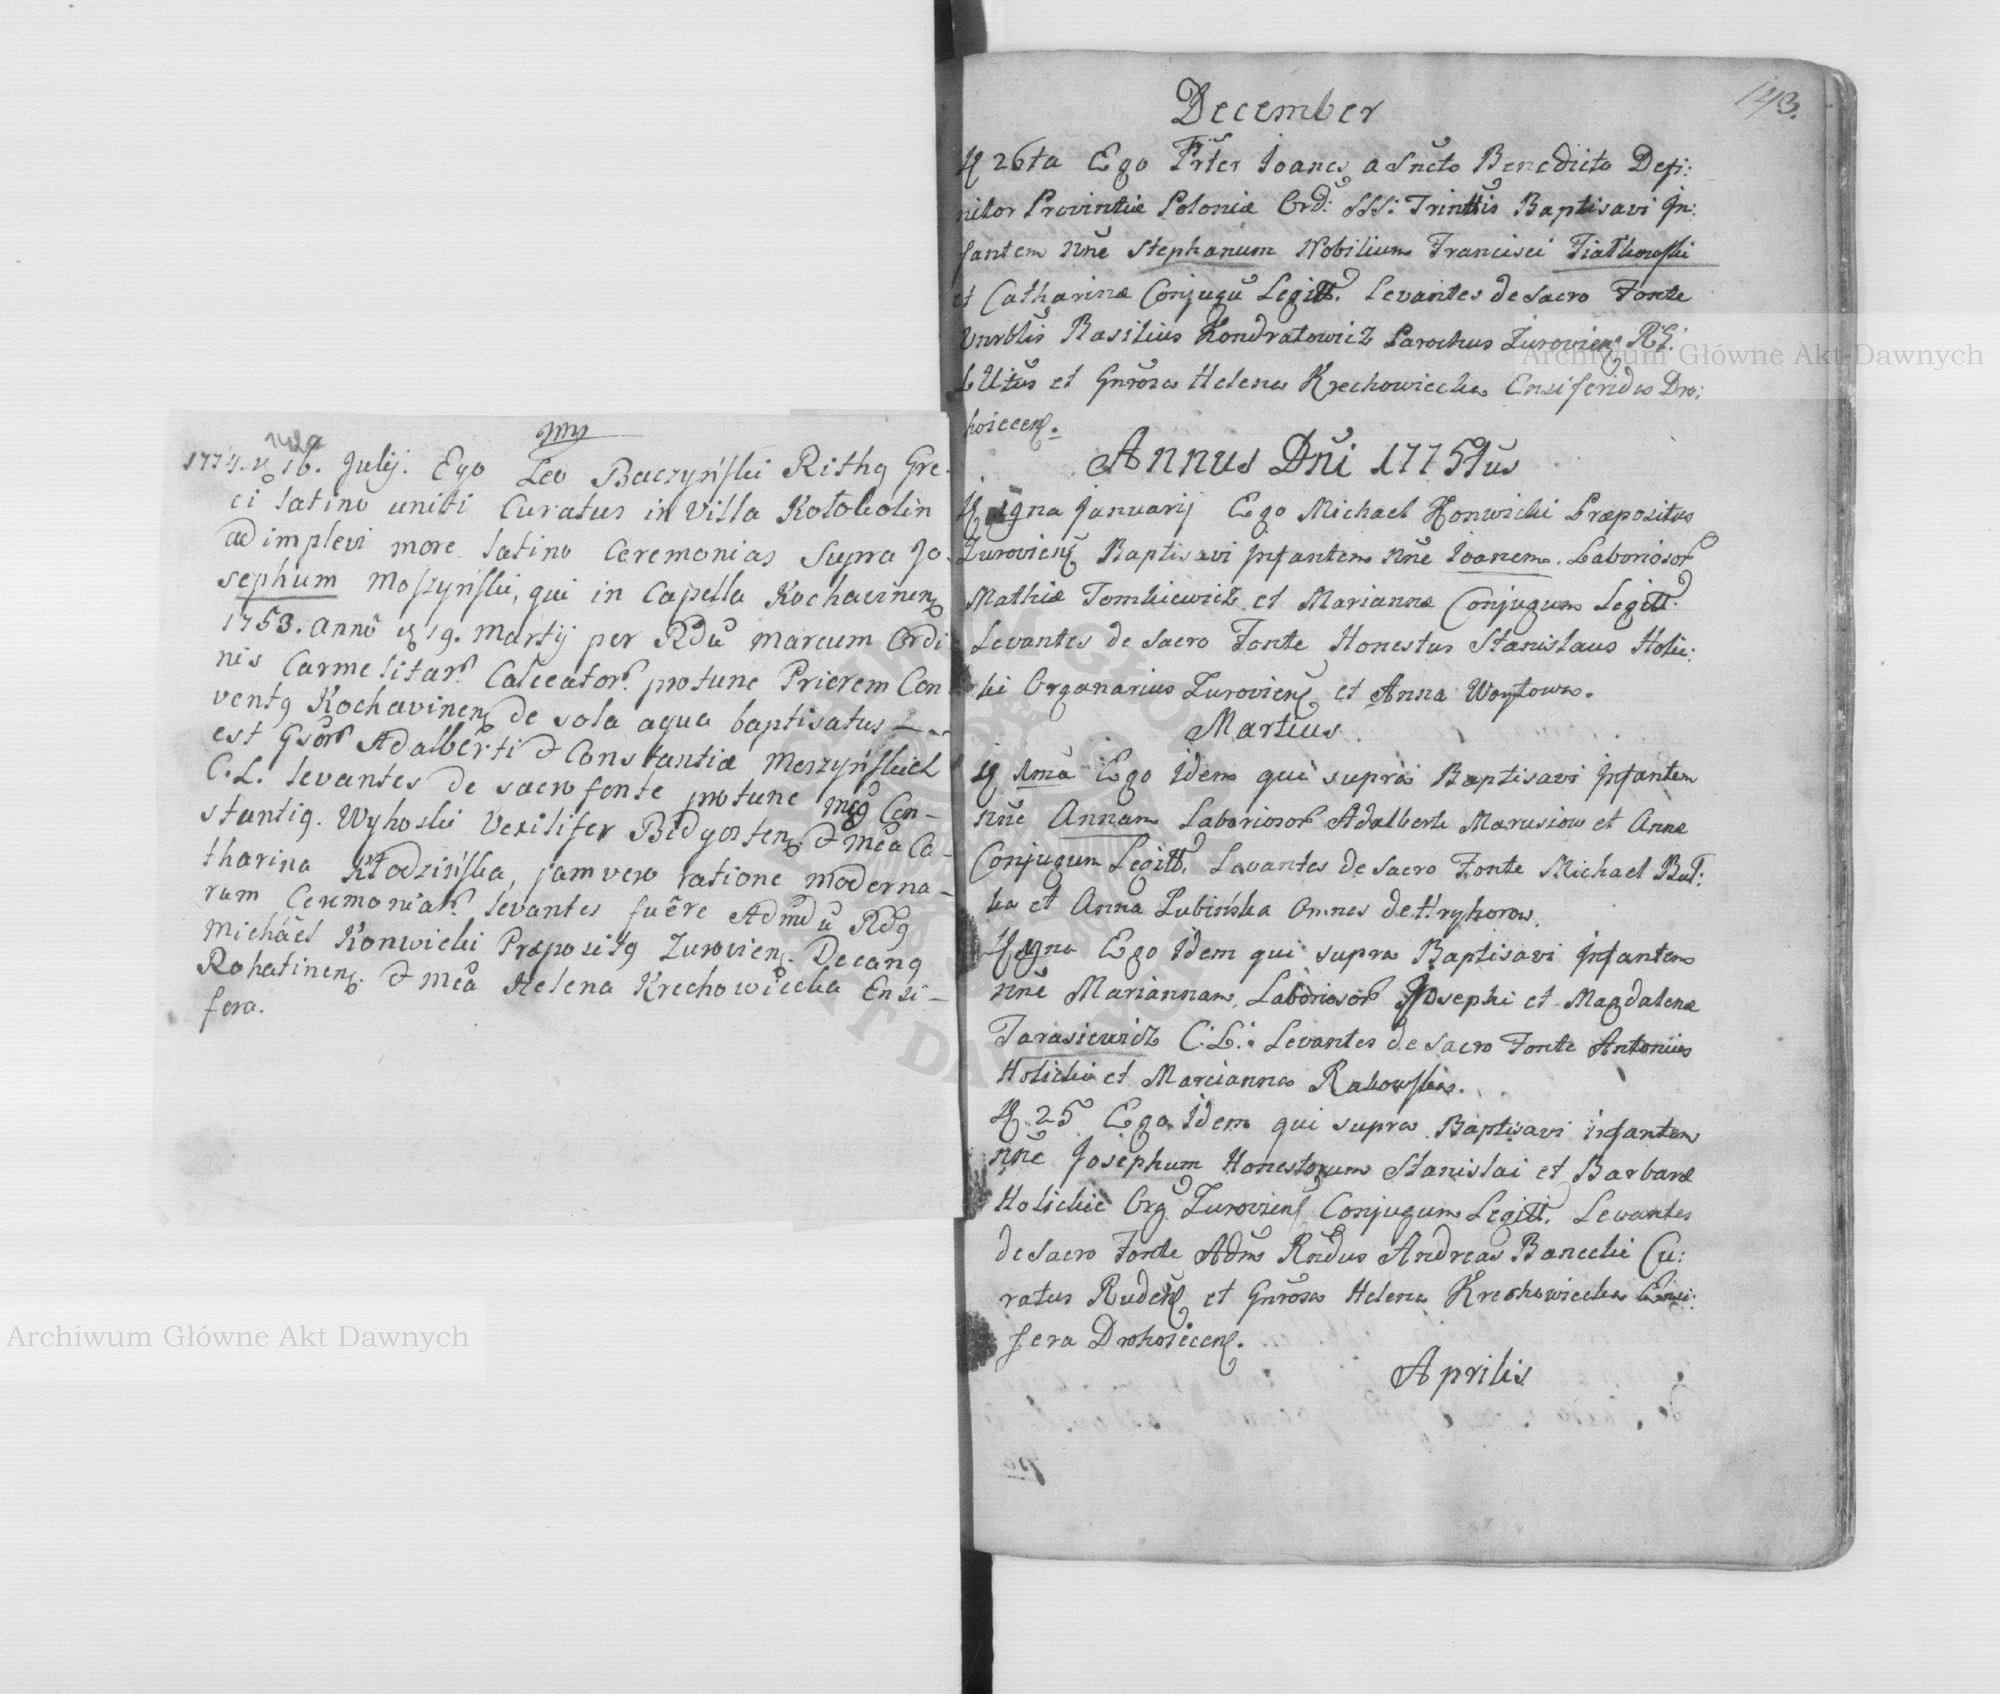 142a
1774. 16. Julij. Ego Leo Baczyński Rithg Gre-
ci latino uniti Curatus in Villa Kołokolin
adimplevi more latino Ceremonias Supra Jo-
sephum Moszyński, qui in Capella Kochavinen
1753. anno 19. Martij per Rdu Marcum Ordi
nis Carmelitar. Calceator. protunc Priorem Con
ventg Kochavinen de sola aqua baptisatus
est Gsor Adalberti & Constantiæ Moszyńskich
C. L. levantes de sacro fonte protunc Mgg Con-
stantig. Wyhoski Vexilifer Bidgosten & Mca Ca-
tharina Kłodzińska, jam vero ratione moderna-
rum Ceremoniar. levantes fuêre Admdu Rdg
Michäel Konwicki Præpositg Zurovien. Decang
Rohatinen. & Mca Helena Krechowiecka Ensi-
fera.
143.
December
26ta Ego Frter Joanes a Sncto Benedicto Defi:
nitor Provintiæ Poloniæ Ord: SSS: Trinttis Baptisavi In:
fantem nne Stephanum Nobilium Francisci Fiałkowski
et Catharinæ Conjugu Legitt. Levantes de Sacro Fonte
Vnrblis Basilius Kondratowicz Parochus Zurovien R. G.
L Utus et Gnrosa Helena Krechowiecka Ensiferides Dro:
hoiecen.
Annus Dni 1775tus
Januarij Ego Michael Konwicki Præpositus
Zurovien Baptisavi Infantem nne Joanem. Laboriosor
Mathiæ Tomkiewicz et Mariannæ Conjugum Legitt.
Levantes de Sacro Fonte Honestus Stanislaus Holic:
ki Organarius Zurovien et Anna Woytowa.
Martius
1ma Ego Idem qui supra Baptisavi Infantem
nne Annam Laboriosor Adalberti Marusiow et Annæ
Conjugum Legitt. Levantes de Sacro Fonte Michael Bul:
ka et Anna Lubińska Omnes de Hryhorow.
Ego Idem qui supra Baptisavi Infantem
nne Mariannam, Laboriosor Josephi et Magdalenæ
Tarasiewicz C: L: Levantes de Sacro Fonte Antonius
Holicki et Marcianna Rakowska.
25 Ego Idem qui supra Baptisavi infantem
nne Josephum Honestorum Stanislai et Barbaræ
Holickie Org Zurovien Conjugum Legitt. Levantes
de Sacro Fonte Adm Rndus Andreas Banecki Cu:
ratus Ruden et Gnrosa Helena Krechowiecka Ensi:
fera Drohoiecen.
Aprilis
Archiwum Główne Akt Dawnych
Archiwum Główne Akt Dawnych